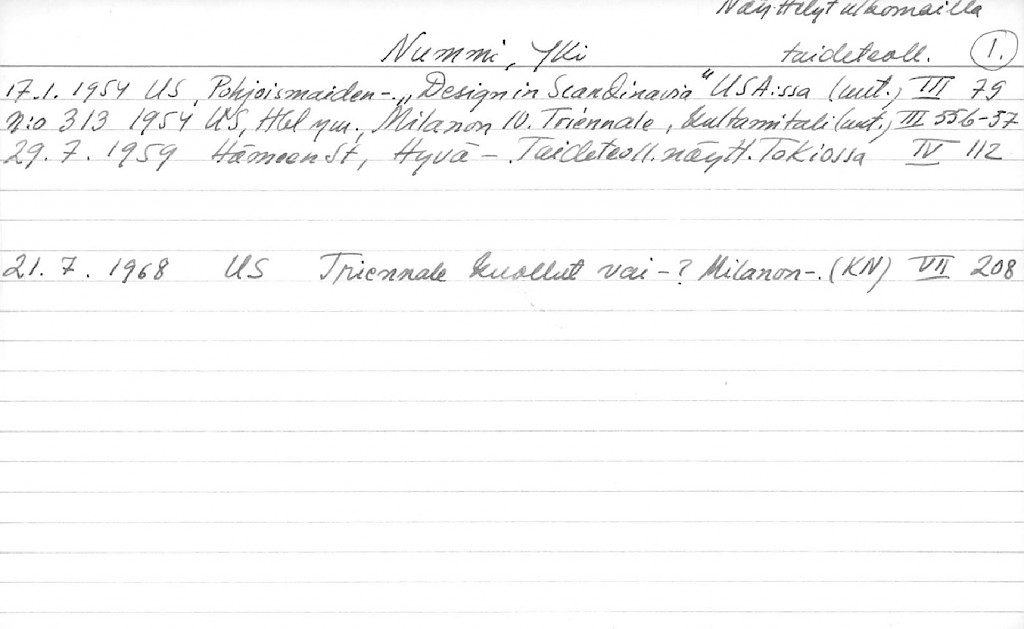 Näyttelyt ulkomailla
Nummi, Yki taideteoll. 1.
17.1. 1954 US, Pohjoismaiden-. „Design in Scandinavia" USA:ssa (uut.) III 79
n:o 313 1954 US, Hel ym., Milanon 10. Triennale, kultamitali (uut.) III 556-57
29.7.1959 HämeenSt, Hyvä -. Taideteoll. näytt. Tokiossa IV 112
21.7.1968 US Triennale kuollut vai -? Milanon-. (KN) VII 208